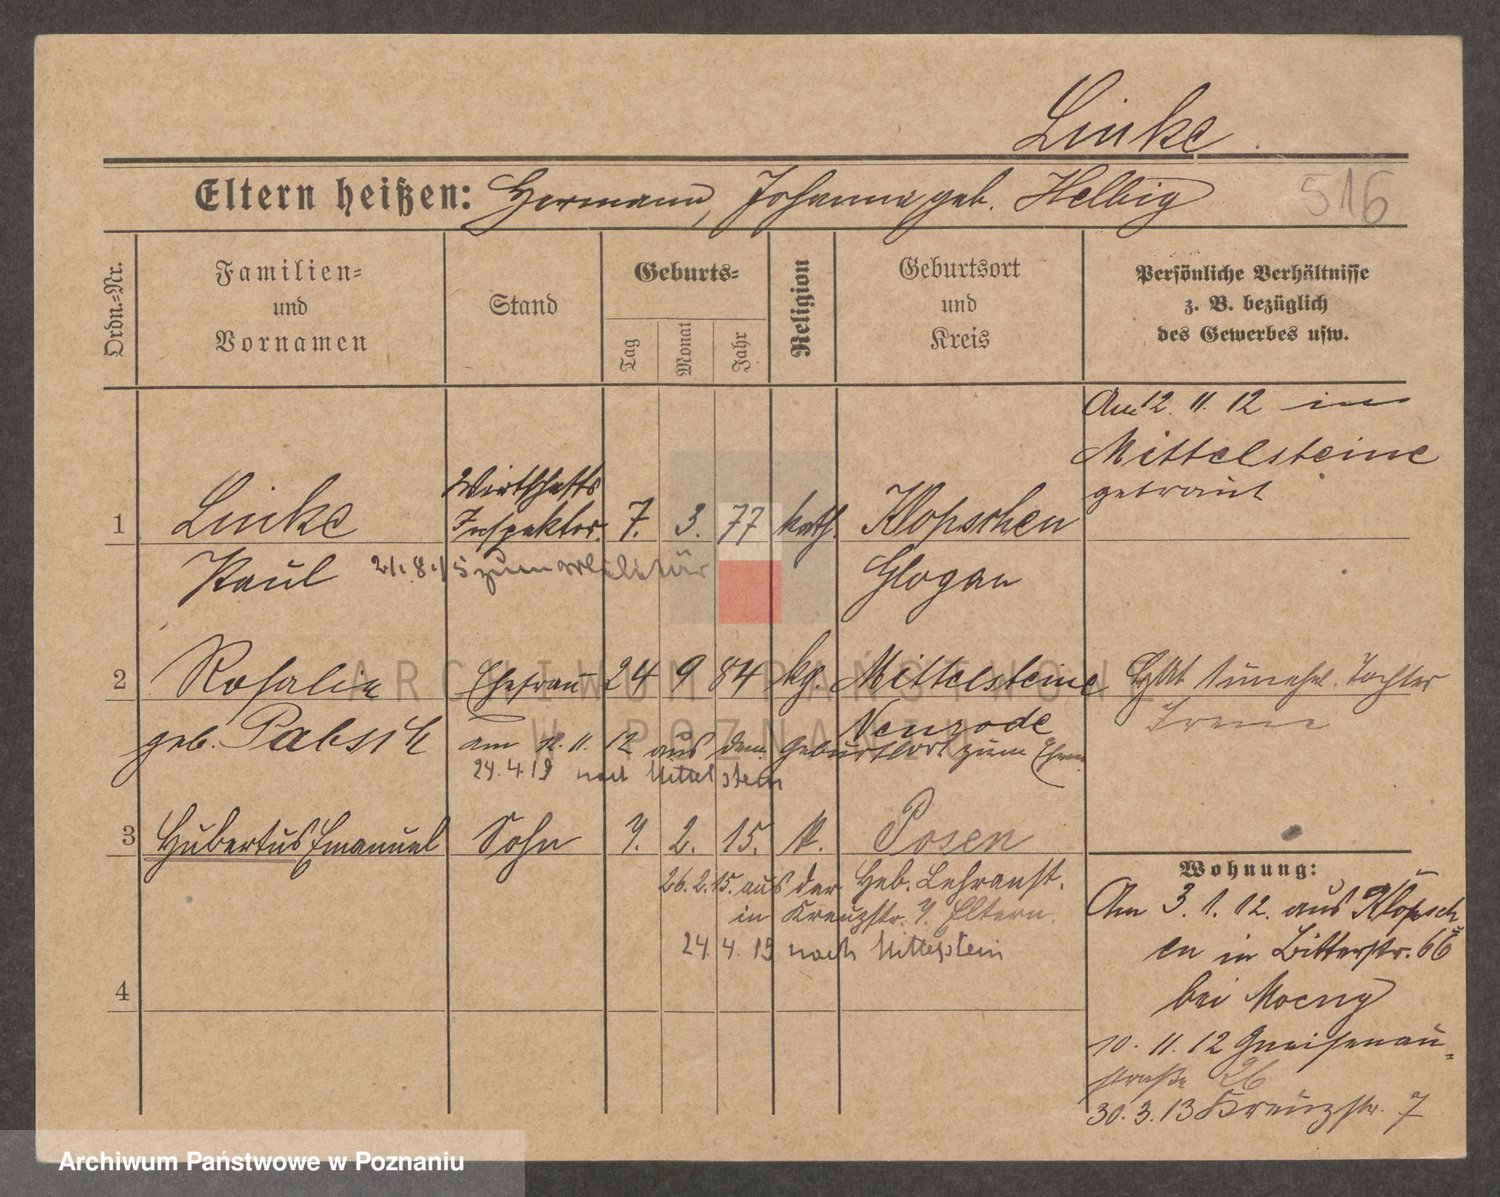 Linke
Eltern heißen: Hermann, Johanna geb. Helbig
516
Ordn.=Nr.
Familien=
und
Vornamen
Stand
Geburts=
Tag
Monat
Jahr
Religion
Geburtsort
und
Kreis
Persönliche Verhältnisse
z. B. bezüglich
des Gewerbes usw.
Am 12. 11. 12 in
Mittelsteine
getraut
1 Linke Wirthschafts Inspektor. 7. 3. 77 kath. Klopschen
Paul 21. 8. 15 zum Militär Glogau
2 Rosalie Ehefrau 24 9 84 kg. Mittelsteine Hat unehel. Tochter
geb. Pabsch Neurode
am 12. 11. 12 aus dem Geburtsort zum Ehem.
24.4.19 nach Mittelstein
3 Hubertus Emanuel Sohn 7. 2. 15. k. Posen
26.2.15. aus der Heb. Lehranst.
in Kreuzstr. 7. Eltern.
24. 4. 19 nach Mittelstein
4
Wohnung:
Am 3. 1. 12. aus Klopsch=
en in Bitterstr. 66
bei
10. 11. 12 Gneisenau=
straße 26
30. 3. 13 Kreuzstr. 7
ARCHIWUM PAŃSTWOWE
W POZNANIU
Archiwum Państwowe w Poznaniu